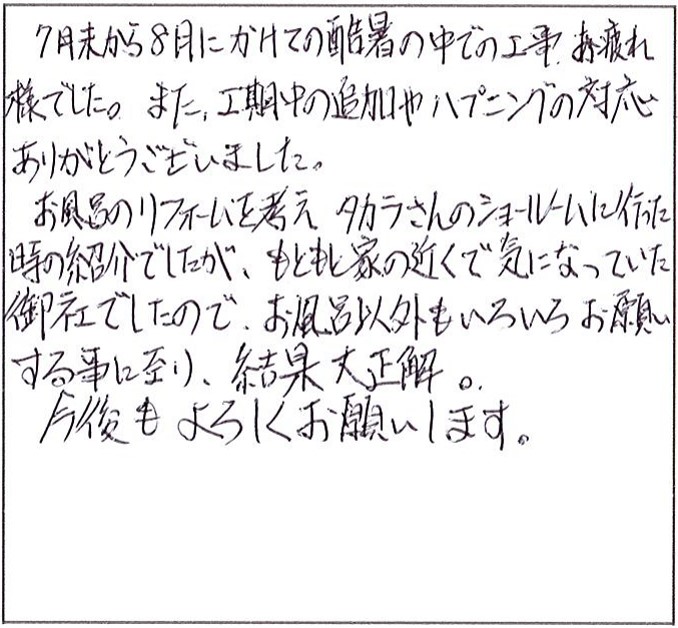 7月末から8月にかけての酷暑の中での工事、お疲れ
様でした。また、工期中の追加やハプニングの対応
ありがとうございました。
お風呂のリフォームを考え タカラさんのショールームに行った
時の紹介でしたが、もともと家の近くで気になっていた
御社でしたので、お風呂以外もいろいろお願い
する事に至り、結果大正解。
今後もよろしくお願いします。